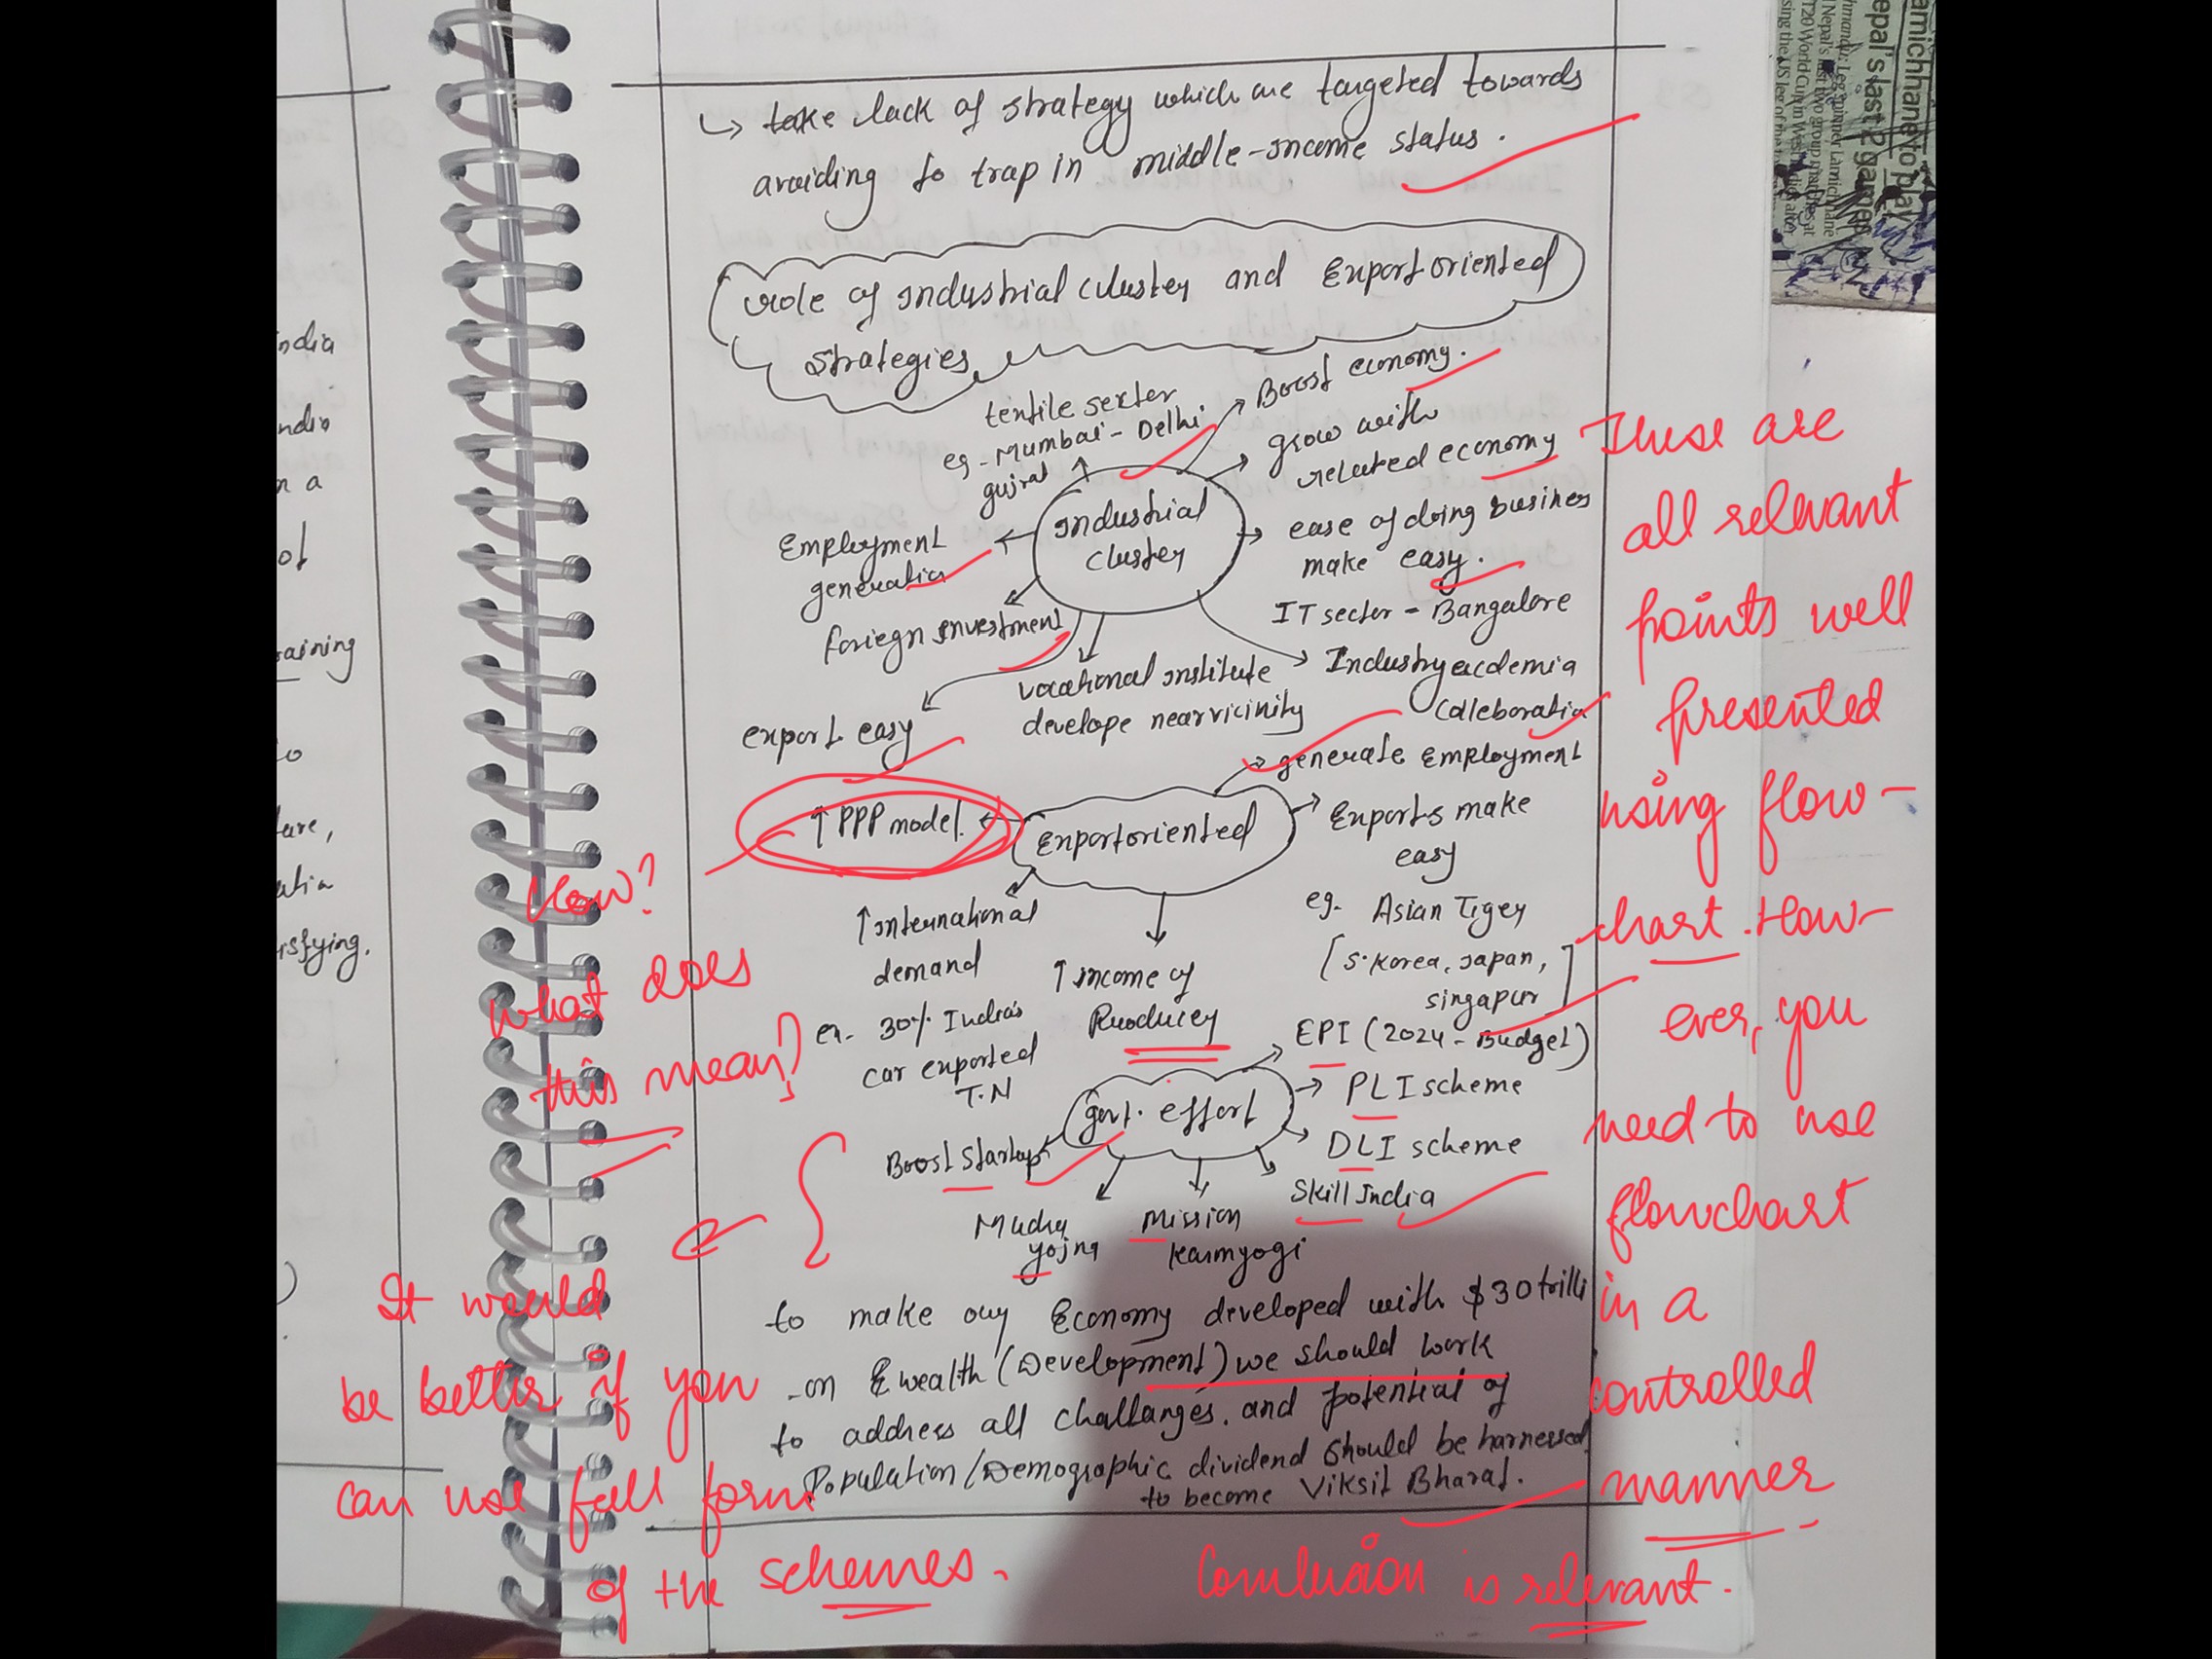 ↳ take lack of strategy which are targeted towards
avoiding to trap in middle-income status.
role of industrial cluster and Export oriented
strategies
textile sector
eg - Mumbai - Delhi
gujrat
Boost economy.
grow with
related economy
Industrial
cluster
ease of doing busines
make easy.
Employment
generation
IT sector - Bangalore
foriegn investment
Industry acdemia
Colleboration
vocational institute
develope near vicinity
export easy
generate Employment
↑ PPP model.
Exportoriented
Exports make
easy
eg. Asian Tiger
[S.Korea, Japan,
singapur]
↑ international
demand
ex. 30% India's
car exported
T.N
↑ income of
Producer
govt. effort
EPI (2024 - Budget)
PLI scheme
DLI scheme
Skill India
Mission
Karmyogi
Mudra
yojna
Boost Startup
to make our Economy developed with $30 trilli
on & wealth (Development) we should work
to address all challanges, and potential of
Population/Demographic dividend should be harnessed
to become Viksit Bharat.
These are
all relevant
points well
presented
using flow-
chart. How-
ever, you
need to use
flowchart
in a
controlled
manner
How?
what does
this mean?
It would
be better if you
can use full form
of the schemes.
Conclusion is relevant.
ndia
ndia
n a
of
raining
ture,
isfying.
in
amichhane to play
epal's last 2 games